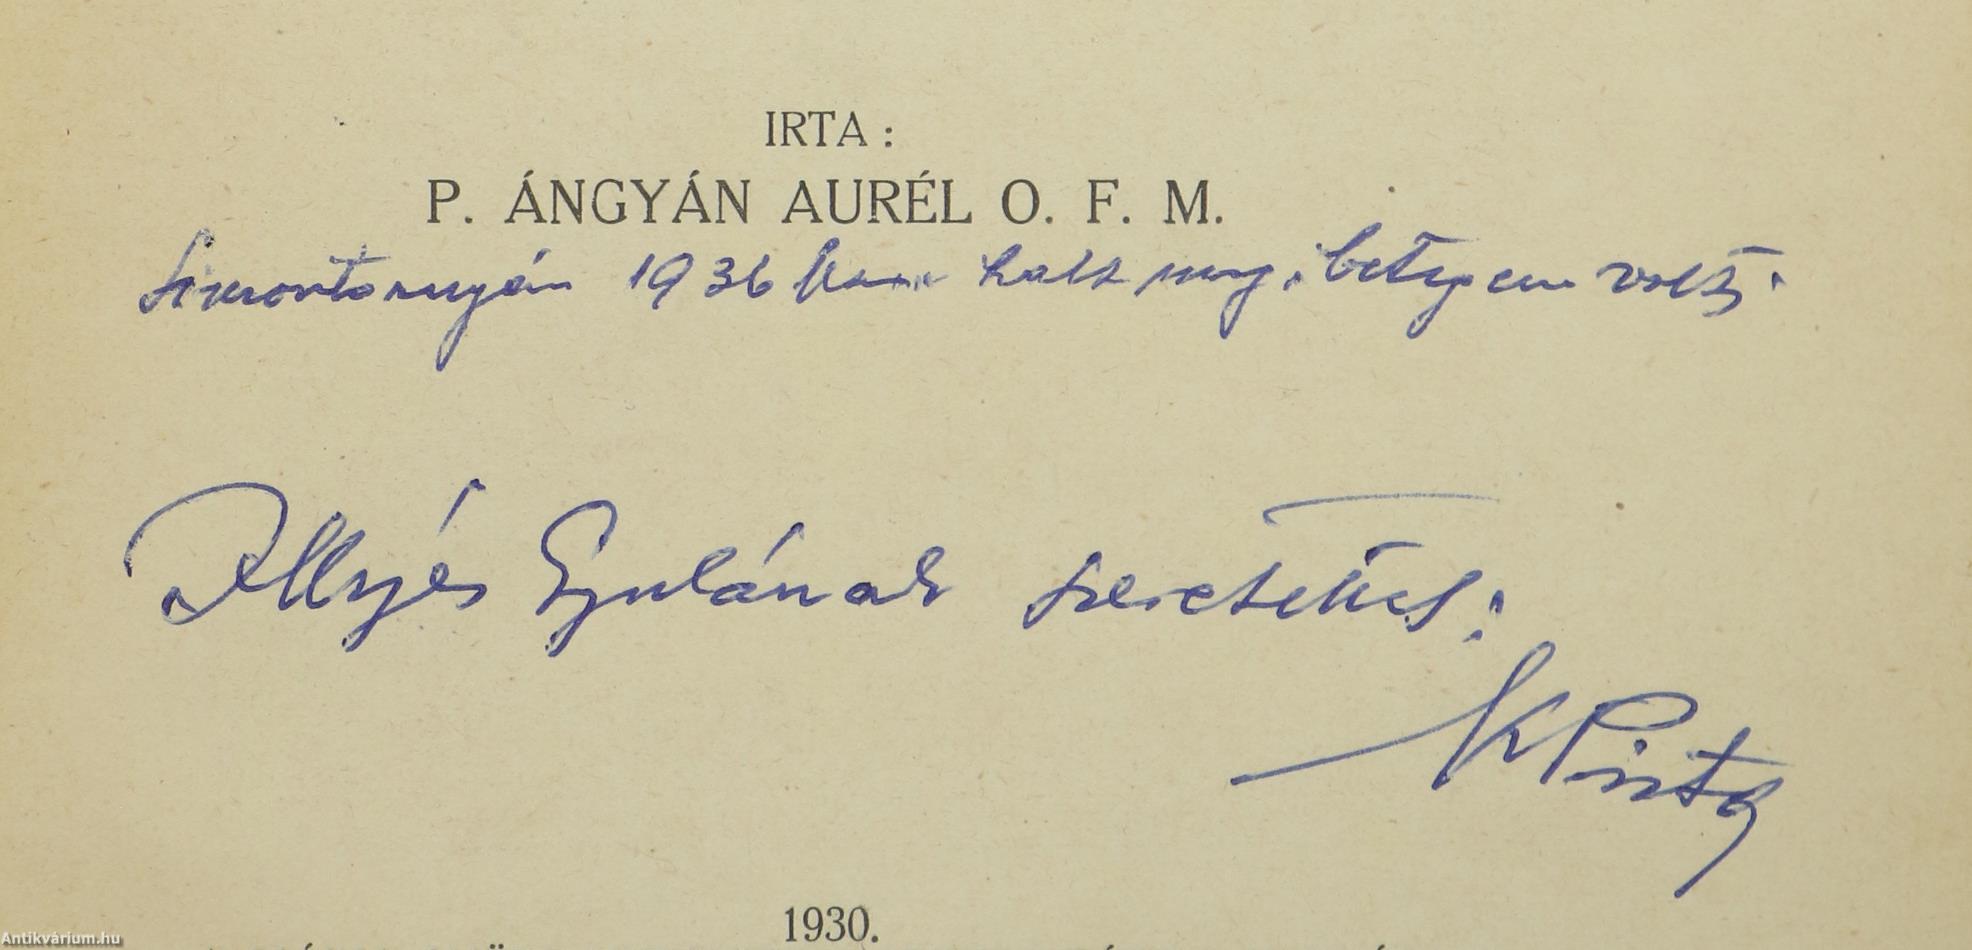 IRTA :
P. ÁNGYÁN AURÉL O. F. M.
Simontornyán 1936 ban halt meg, betegem volt.
Illyés Gyulának szeretettel:
K Pinté
1930.
Antikvárium.hu